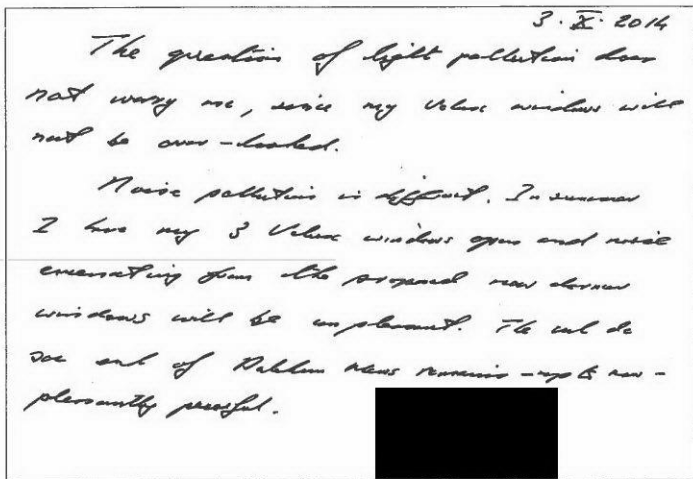 3. X. 2014
The question of light pollution does
not worry me, since my Velux windows will
not be over-looked.
Noise pollution is different. In summer
I have my 3 Velux windows open and noise
emanating from the proposed new dormer
windows will be unpleasant. The cul de
sac end of Mews remains - up to now -
pleasantly peaceful.